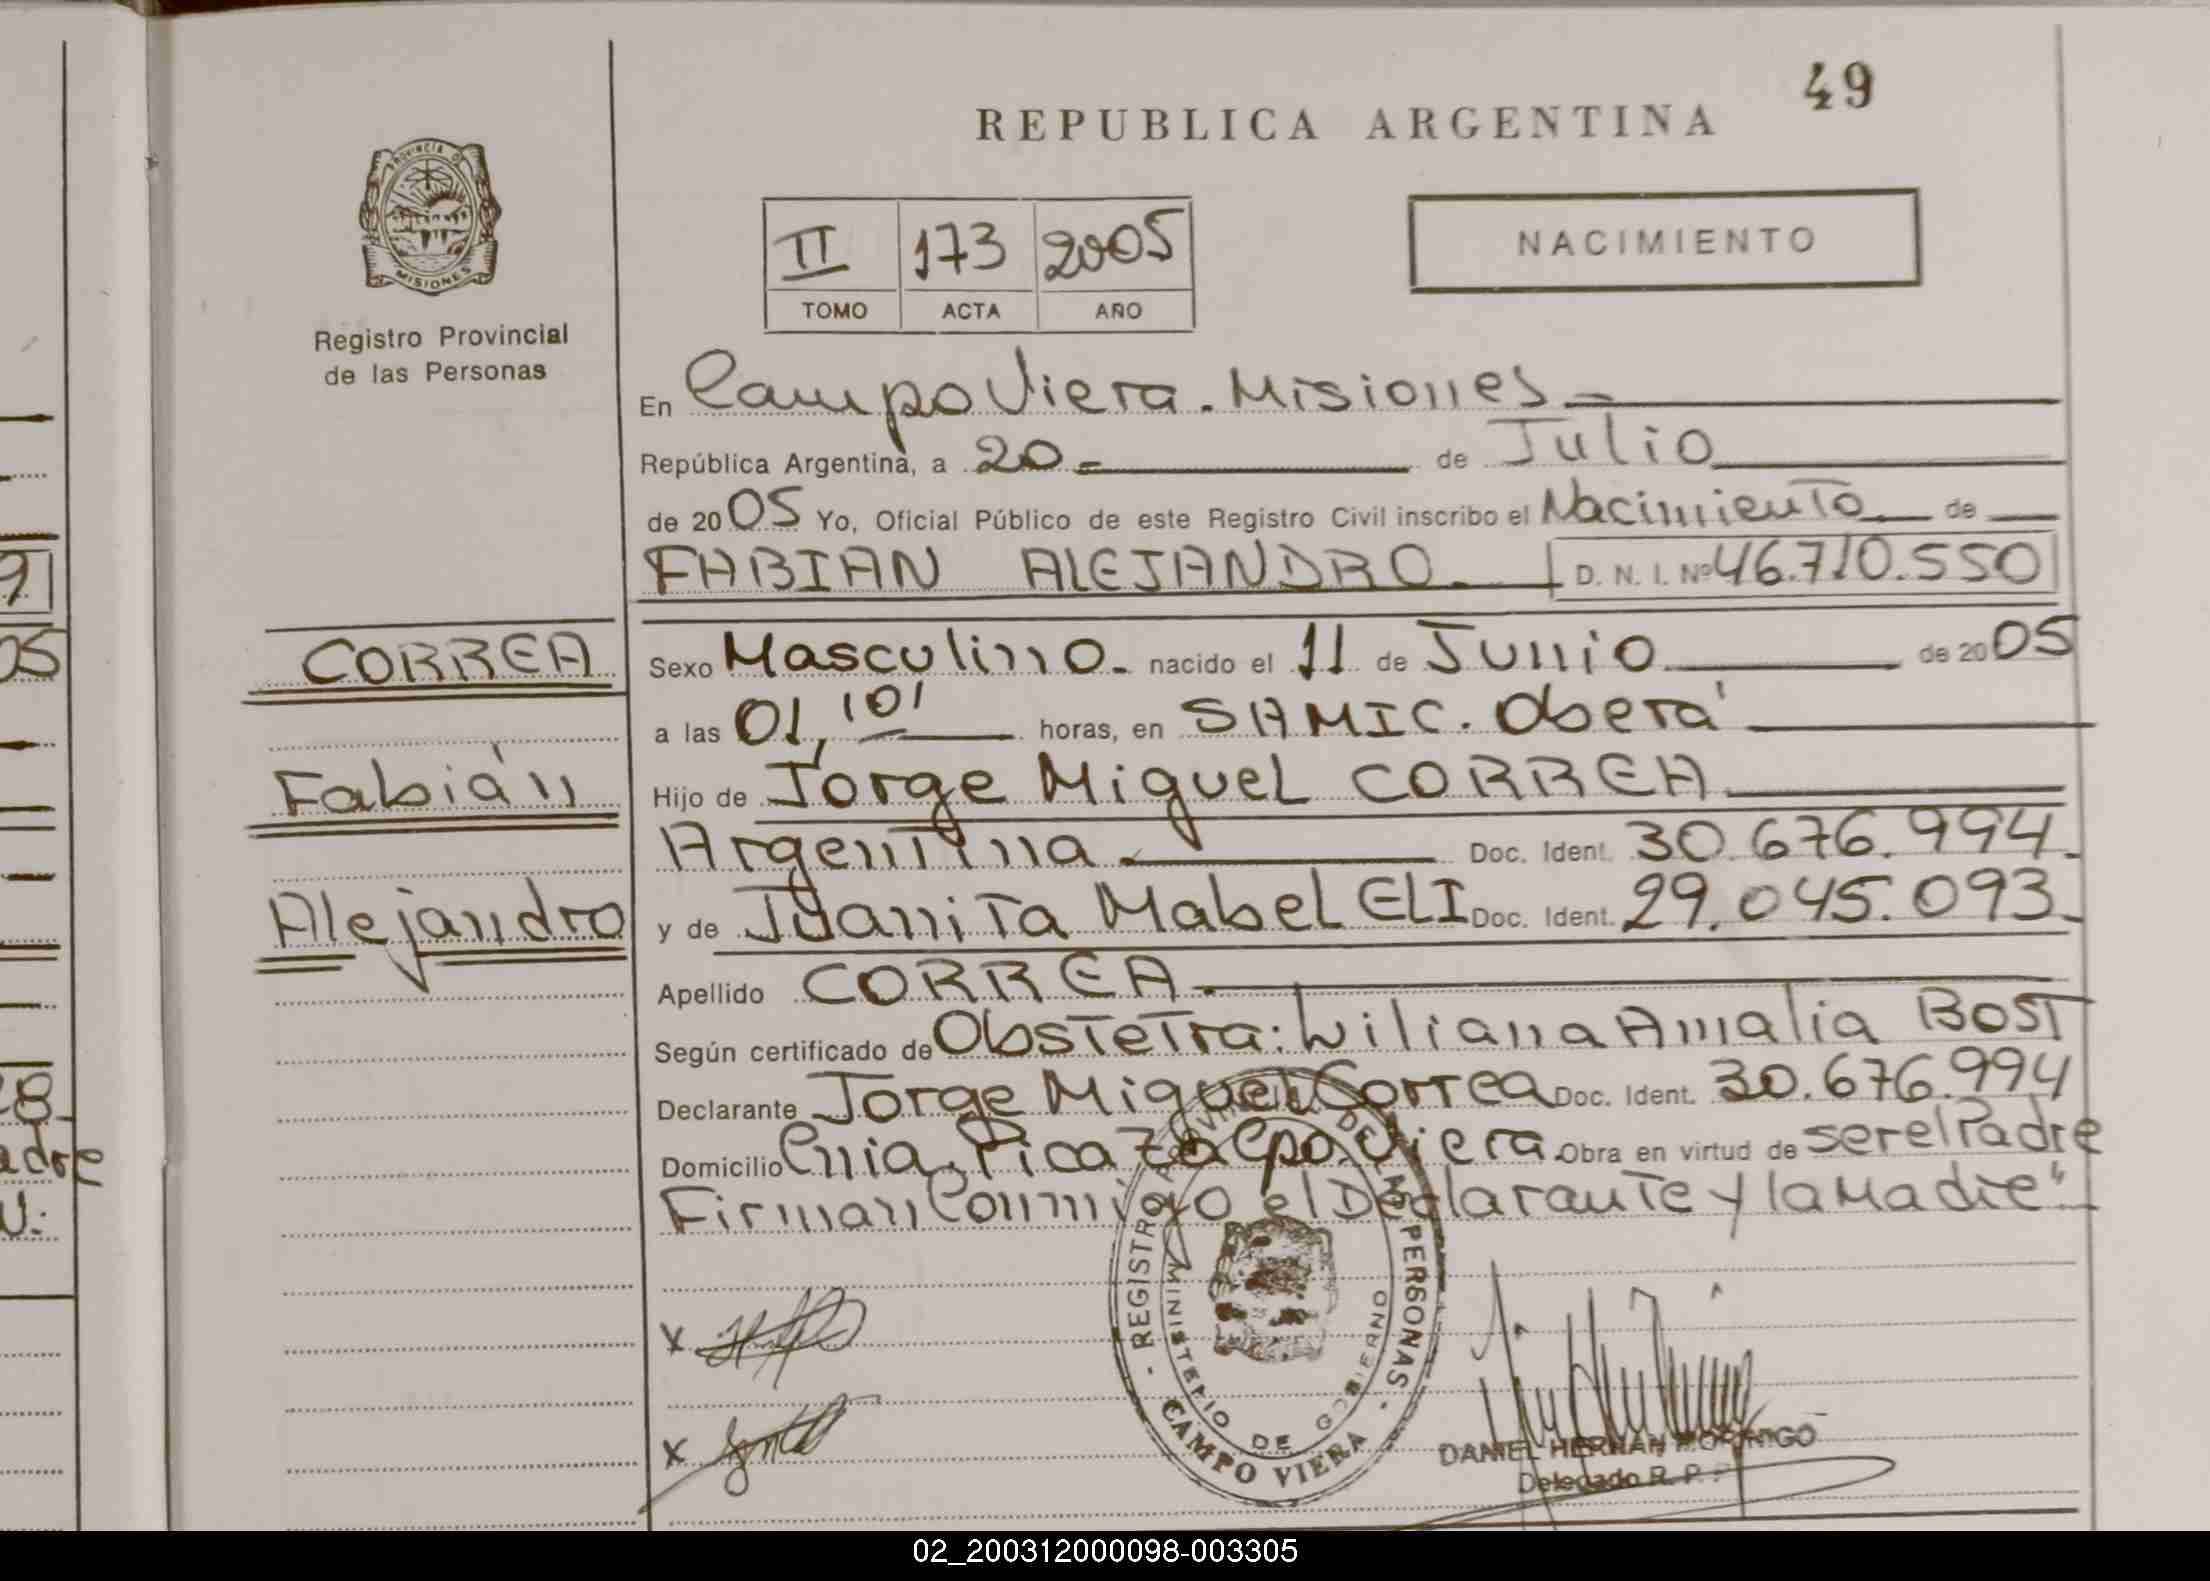 49
REPUBLICA ARGENTINA
PROVINCIA D
MISIONES
Registro Provincial
de las Personas
II 173 2005
TOMO ACTA AÑO
NACIMIENTO
En Campo Viera. Misiones
República Argentina, a 20 de Julio
de 2005 Yo, Oficial Público de este Registro Civil inscribo el Nacimiento de
FABIAN ALEJANDRO D. N. I. Nº 46.710.550
CORREA
Fabián
Alejandro
Sexo Masculino nacido el 11 de Junio de 2005
a las 01,'10' horas, en SAMIC. Oberá
Hijo de Jorge Miguel CORREA
Argentina Doc. Ident. 30.676.994
y de Juanita Mabel ELI Doc. Ident. 29.045.093
Apellido CORREA
Según certificado de Obstetra: Liliana Amalia BOST
Declarante Jorge Miguel Correa Doc. Ident. 30.676.994
Domicilio Cnia. Picaza Cpo. Viera Obra en virtud de ser el Padre
Firman Conmigo el Declarante y la Madre"
X
X
REGISTRO PROVINCIAL DE LAS PERSONAS
MINISTERIO DE GOBIERNO
CAMPO VIERA
DANIEL HERNAN MORINIGO
Delegado R. P. P.
9
05
28
adre
N:
02_200312000098-003305